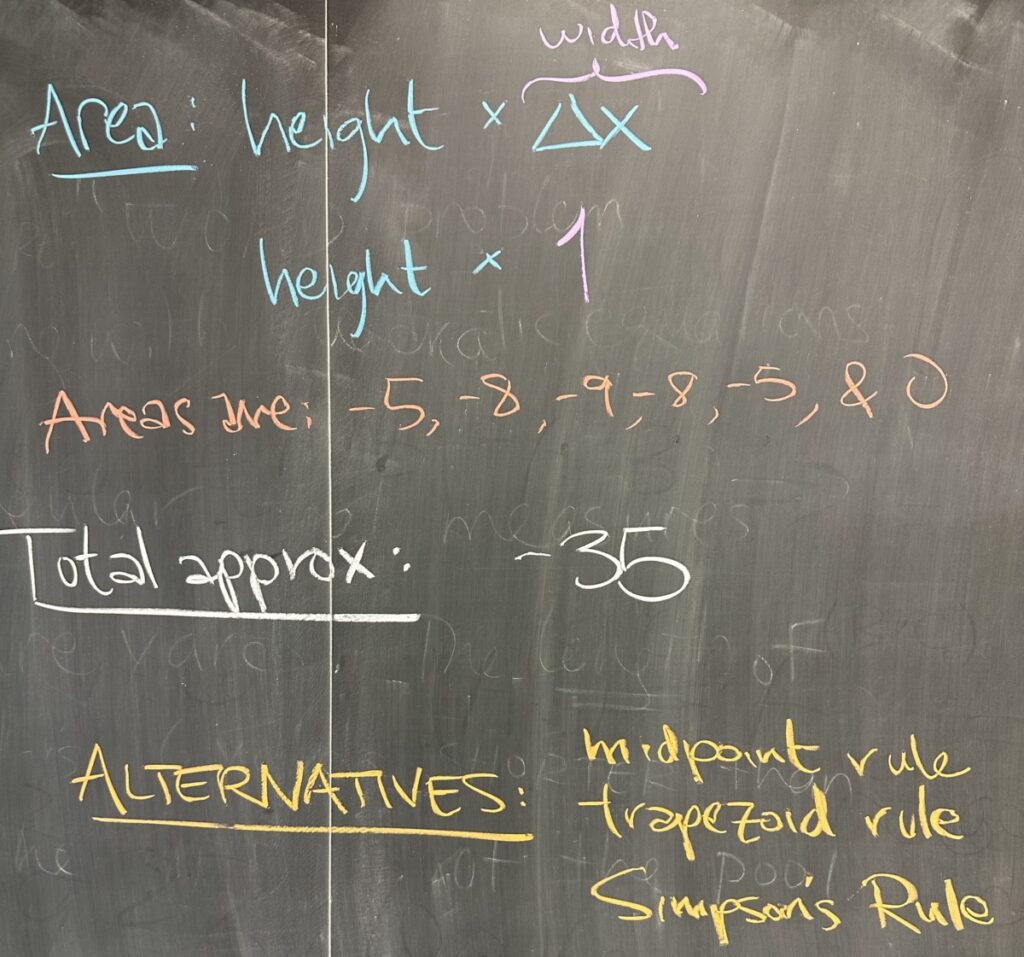 width
Area: height × Δx
height × 1
Areas are: -5, -8, -9, -8, -5, & 0
Total approx: -35
ALTERNATIVES: midpoint rule
trapezoid rule
Simpson's Rule